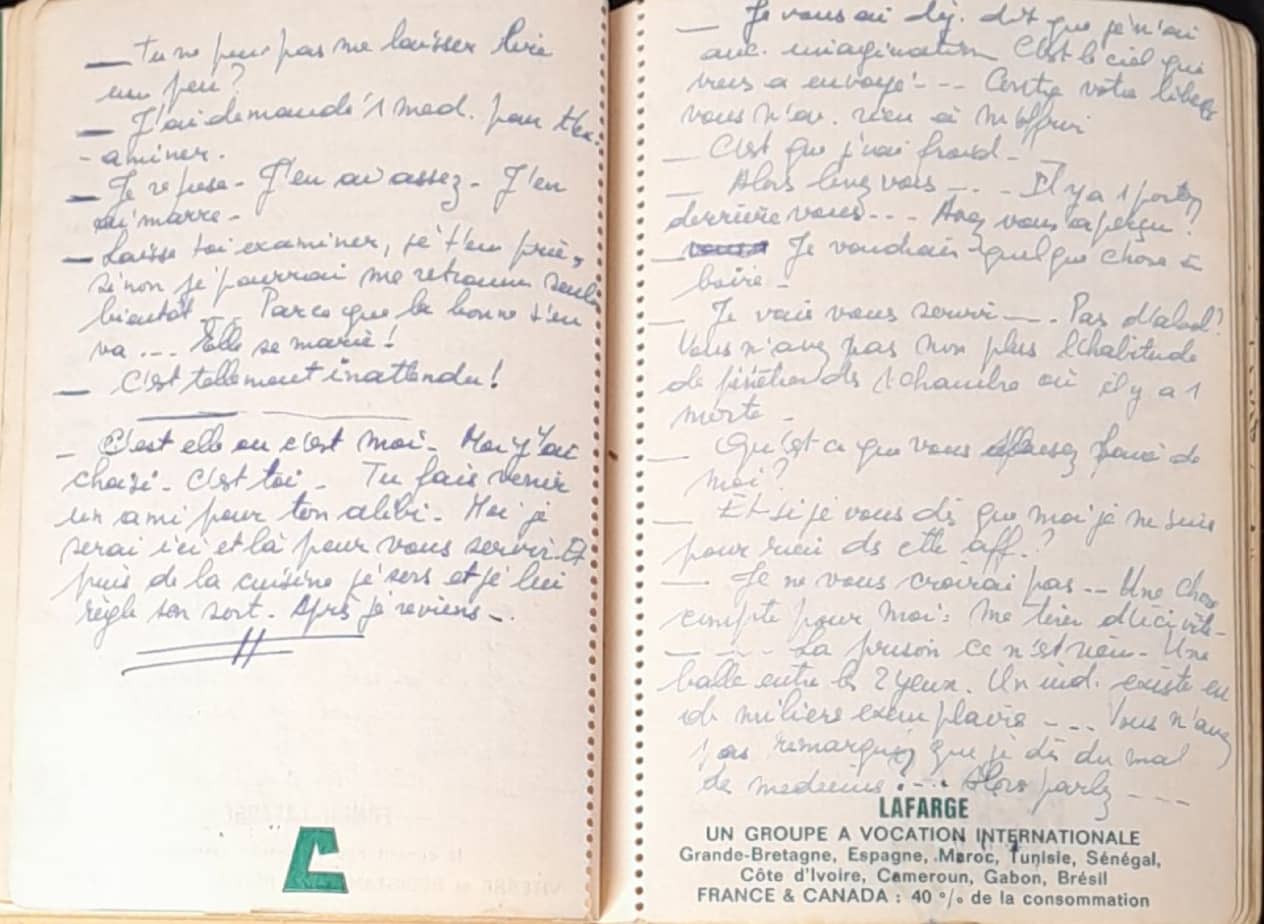 — Tu ne peux pas me laisser lire
un peu?
— J'ai demandé 1 med. pour t'ex-
- aminer.
— Je refuse - J'en ai assez - J'en
ai marre -
— Laisse toi examiner, je t'en prie,
sinon je pourrai me retrouver seule
bientôt --- Parce que la bonne s'en
va --- Elle se marie!
— C'est tellement inattendu!
_ C'est elle ou c'est moi - Moi j'ai
choisi - C'est toi - Tu fais venir
un ami pour ton alibi - Moi je
serai ici et là pour vous servir. Et
puis de la cuisine je sors et je lui
règle son sort. Après je reviens -.
— Je vous ai dj. dit que je n'ai
auc. imagination C'est le ciel qui
vous a envoyé --- Contre votre liberté
vous n'av. rien à m'offrir
— C'est que j'ai froid -
— Alors levez vous --- Il y a 1 porte
derrière vous --- Avez vous aperçu?
— Je voudrais quelque chose à
boire -
— Je vais vous servir --- Pas d'alcool?
Vous n'avez pas non plus l'habitude
de pénétrer ds 1 chambre où il y a 1
morte -
— Qu'est ce que vous faire de
moi?
— Et si je vous dis que moi je ne suis
pour rien ds cette aff.?
— Je ne vous croirai pas -- Une chose
compte pour moi: me tirer d'ici vite -
— -- La prison ce n'est rien - Une
balle entre les 2 yeux. Un ind. existe en
de milliers exemplaires --- Vous n'avez
pas remarquez que je dis du mal
de medecins --- Alors parlez ---
LAFARGE
UN GROUPE A VOCATION INTERNATIONALE
Grande-Bretagne, Espagne, Maroc, Tunisie, Sénégal,
Côte d'Ivoire, Cameroun, Gabon, Brésil
FRANCE & CANADA : 40 % de la consommation